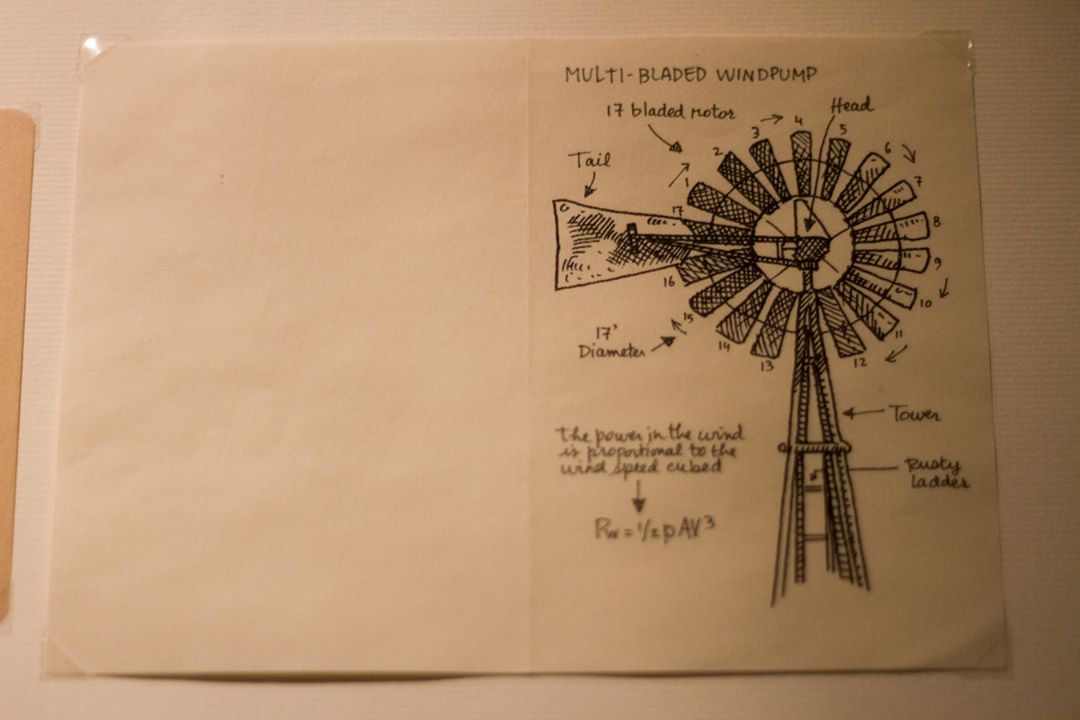 MULTI-BLADED WINDPUMP
17 bladed rotor
Head
Tail
1
2
3
4
5
6
7
8
9
10
11
12
13
14
15
16
17
17'
Diameter
Tower
Rusty
Ladder
the power in the wind
is proportional to the
wind speed cubed
Pw = 1/2 ρ AV³